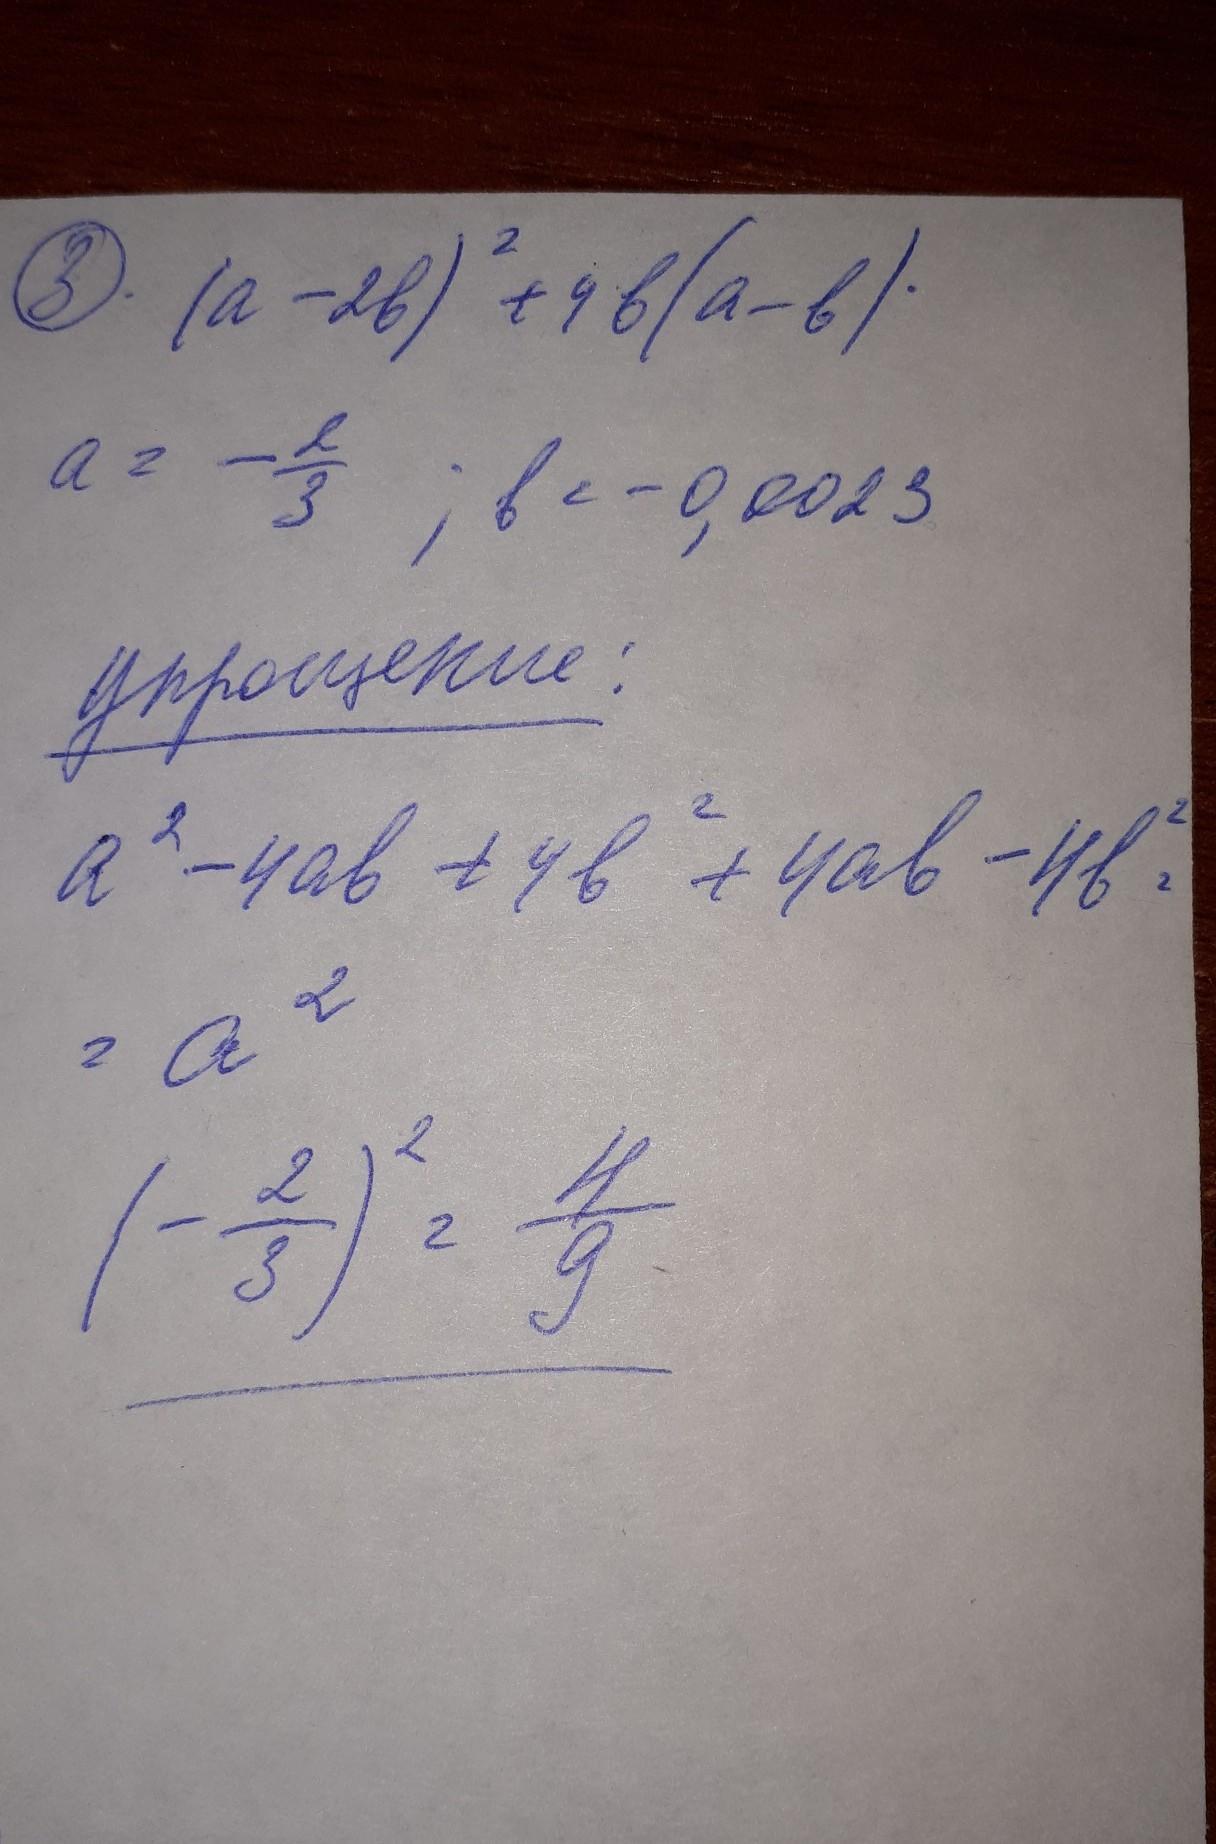 3. (a - 2b)² + 4b(a - b).
a = -2/3 ; b = -0,0023
Упрощение:
a² - 4ab + 4b² + 4ab - 4b² =
= a²
(-2/3)² = 4/9